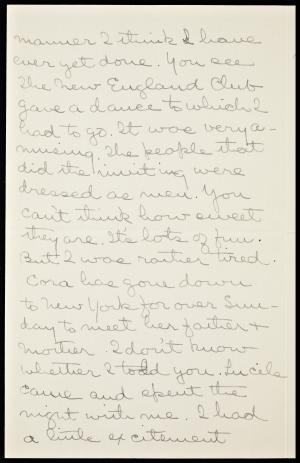 manner I think I have
ever yet done. You see
The New England Club
gave a dance to which I
had to go. It was very a-
musing. The people that
did the inviting were
dressed as men. You
can't think how sweet
they are. Its lots of fun.
But I was rather tired.
Cora has gone down
to New York for over Sun-
day to meet her father +
mother. I don't know
whether I told you. Lucile
came and spent the
night with me. I had
a little excitement